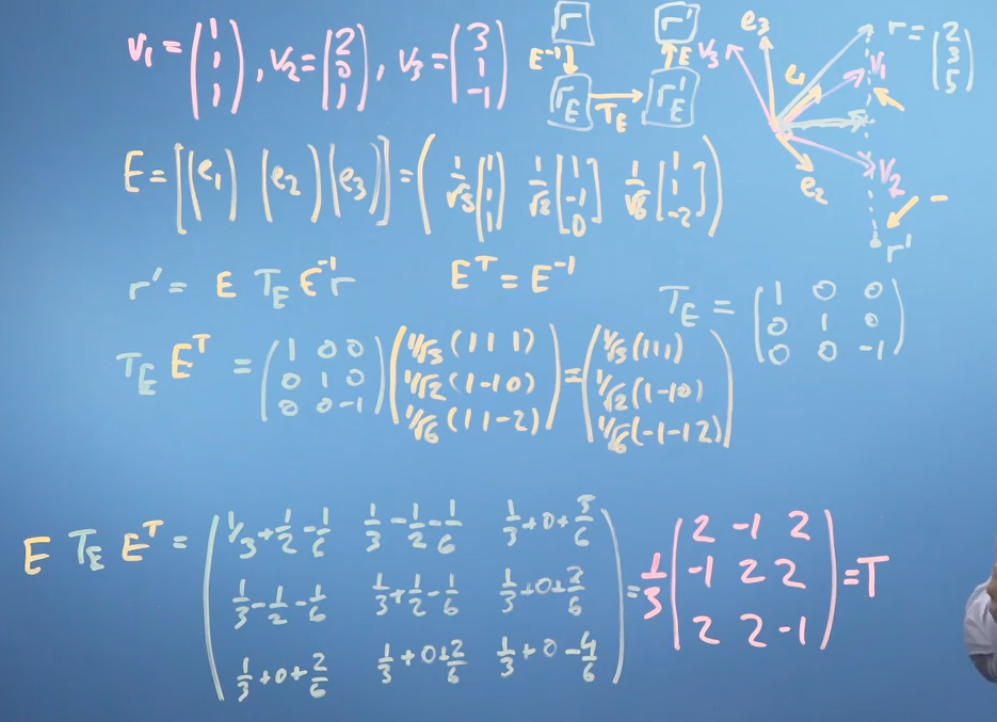 v₁ = (1 1 1), v₂ = (2 0 1), v₃ = (3 1 -1)
r r'
E⁻¹ ↓ ↑ E
r_E → r'_E
T_E
e₃ r = (2 3 5)
v₃ e₁ v₁
e₂ v₂
r'
E = [(e₁) (e₂) (e₃)] = (1/√3 [1 1 1] 1/√2 [1 -1 0] 1/√6 [1 1 -2])
r' = E T_E E⁻¹ r E^T = E⁻¹
T_E = (1 0 0
0 1 0
0 0 -1)
T_E E^T = (1 0 0 (1/√3 (1 1 1) = (1/√3 (1 1 1)
0 1 0 1/√2 (1 -1 0) 1/√2 (1 -1 0)
0 0 -1) 1/√6 (1 1 -2)) 1/√6 (-1 -1 2))
E T_E E^T = (1/3+1/2-1/6 1/3-1/2-1/6 1/3+0+ /6
1/3-1/2-1/6 1/3+1/2-1/6 1/3+0+2/6
1/3+0+2/6 1/3+0+2/6 1/3+0-4/6)
= 1/3 (2 -1 2
-1 2 2
2 2 -1) = T